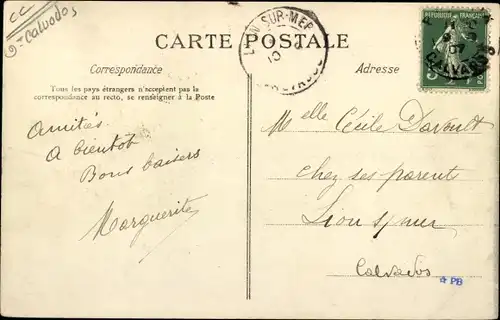 CC
Calvados
CARTE POSTALE
Correspondance
Tous les pays étrangers n'acceptent pas la
correspondance au recto, se renseigner à la Poste
Amitiés
A bientôt
Bons baisers
Marguerite
Adresse
LION SUR-MER
CALVADOS
RÉPUBLIQUE FRANÇAISE
CALVADOS
Melle Cécile Davoult
chez ses parent
Lion s/ mer
Calvados
☆ PB